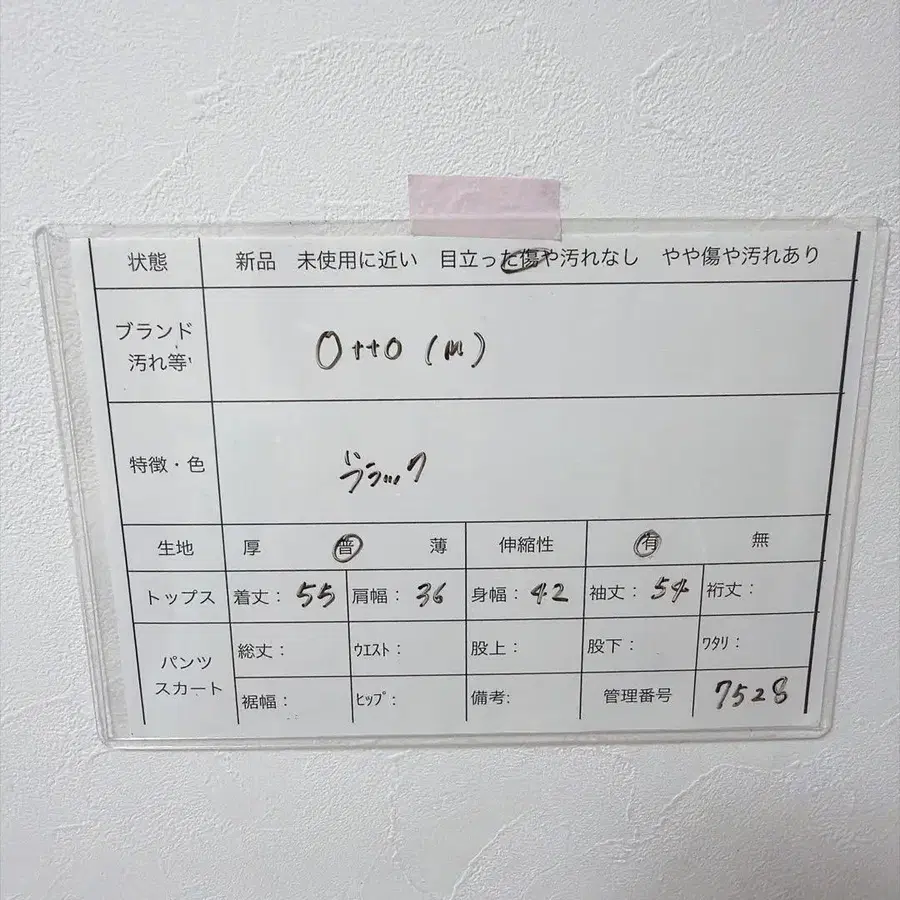 状態 新品 未使用に近い 目立った傷や汚れなし やや傷や汚れあり
ブランド
汚れ等
Otto (M)
特徴・色 ブラック
生地 厚 普 薄 伸縮性 有 無
トップス 着丈： 55 肩幅： 36 身幅： 42 袖丈： 54 裄丈：
パンツ
スカート
総丈： ｳｴｽﾄ： 股上： 股下： ﾜﾀﾘ：
裾幅： ﾋｯﾌﾟ： 備考: 管理番号 7528